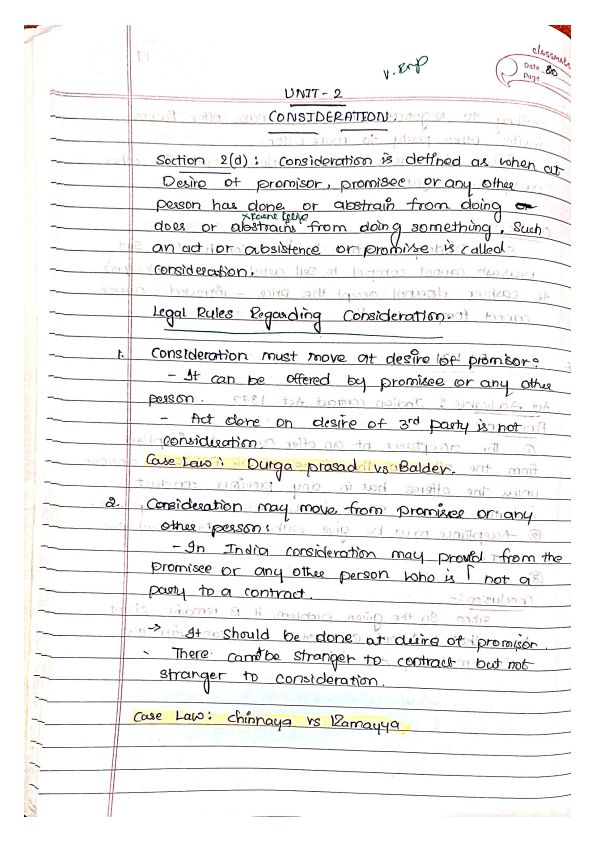 classmate
Date 80
Page
V. Imp
UNIT - 2
CONSIDERATION
Section 2(d) : Consideration is defined as when at
Desire of promisor, promisee or any other
person has done or abstrain from doing or
does or abstrains from doing something, such
an act or absistence or promise is called
consideration.
Legal Rules Regarding Consideration.
1. Consideration must move at desire of promisor:
- It can be offered by promisee or any other
person.
- Act done on desire of 3rd party is not
consideration.
Case Law : Durga prasad vs Baldev.
2. Consideration may move from promisee or any
other person:
- In India consideration may proved from the
promisee or any other person who is not a
party to a contract.
→ It should be done at desire of promisor.
There can be stranger to contract but not
stranger to consideration.
Case Law : Chinnaya vs Ramayya.